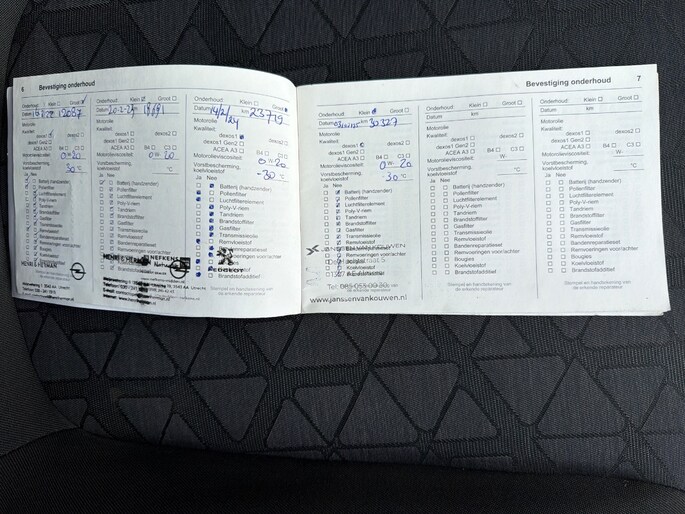 6 Bevestiging onderhoud
Onderhoud: Klein Groot
Datum km 12087
Motorolie
Kwaliteit: dexos1 dexos2
dexos1 Gen2
ACEA A3 B4 C3
Motorolieviscositeit: 0 W- 20
Vorstbescherming, koelvloeistof 30 °C
Ja Nee
Batterij (handzender)
Pollenfilter
Luchtfilterelement
Poly-V-riem
Tandriem
Brandstoffilter
Gasfilter
Transmissieolie
Remvloeistof
Bandenreparatieset
Remvoeringen voor/achter
Bougies
Koelvloeistof
Brandstofadditief
Onderhoud: Klein Groot
Datum km
Motorolie
Kwaliteit:
dexos1 dexos2
dexos1 Gen2
ACEA A3 B4 C3
Motorolieviscositeit: 0 W- 20
Vorstbescherming, koelvloeistof °C
Ja Nee
Batterij (handzender)
Pollenfilter
Luchtfilterelement
Poly-V-riem
Tandriem
Brandstoffilter
Gasfilter
Transmissieolie
Remvloeistof
Bandenreparatieset
Remvoeringen voor/achter
Onderhoud: Klein Groot
Datum 14/2/24 km 23719
Motorolie
Kwaliteit:
dexos1 dexos2
dexos1 Gen2
ACEA A3 B4 C3
Motorolieviscositeit: 0 W- 20
Vorstbescherming,
koelvloeistof -30 °C
Ja Nee
Batterij (handzender)
Pollenfilter
Luchtfilterelement
Poly-V-riem
Tandriem
Brandstoffilter
Gasfilter
Transmissieolie
Remvloeistof
Bandenreparatieset
Remvoeringen voor/achter
Bougies
Koelvloeistof
Brandstofadditief
PEUGEOT
Stempel en handtekening van
de erkende reparateur
Bevestiging onderhoud 7
Onderhoud: Klein Groot
Datum km 30327
Motorolie
Kwaliteit:
dexos1 dexos2
dexos1 Gen2
ACEA A3 B4 C3
Motorolieviscositeit: 0 W- 20
Vorstbescherming,
koelvloeistof -30 °C
Ja Nee
Batterij (handzender)
Pollenfilter
Luchtfilterelement
Poly-V-riem
Tandriem
Brandstoffilter
Gasfilter
Transmissieolie
Remvloeistof
JANSSEN VAN KOUWEN
Bandenreparatieset
Remvoeringen voor/achter
Brandstofadditief
Tel: 085 055 00 30
www.janssenvankouwen.nl
Onderhoud: Klein Groot
Datum km
Motorolie
Kwaliteit:
dexos1 dexos2
dexos1 Gen2
ACEA A3 B4 C3
Motorolieviscositeit: W-
Vorstbescherming,
koelvloeistof °C
Ja Nee
Batterij (handzender)
Pollenfilter
Luchtfilterelement
Poly-V-riem
Tandriem
Brandstoffilter
Gasfilter
Transmissieolie
Remvloeistof
Bandenreparatieset
Remvoeringen voor/achter
Bougies
Koelvloeistof
Brandstofadditief
Stempel en handtekening van
de erkende reparateur
Onderhoud: Klein Groot
Datum km
Motorolie
Kwaliteit:
dexos1 dexos2
dexos1 Gen2
ACEA A3 B4 C3
Motorolieviscositeit: W-
Vorstbescherming,
koelvloeistof °C
Ja Nee
Batterij (handzender)
Pollenfilter
Luchtfilterelement
Poly-V-riem
Tandriem
Brandstoffilter
Gasfilter
Transmissieolie
Remvloeistof
Bandenreparatieset
Remvoeringen voor/achter
Bougies
Koelvloeistof
Brandstofadditief
Stempel en handtekening van
de erkende reparateur